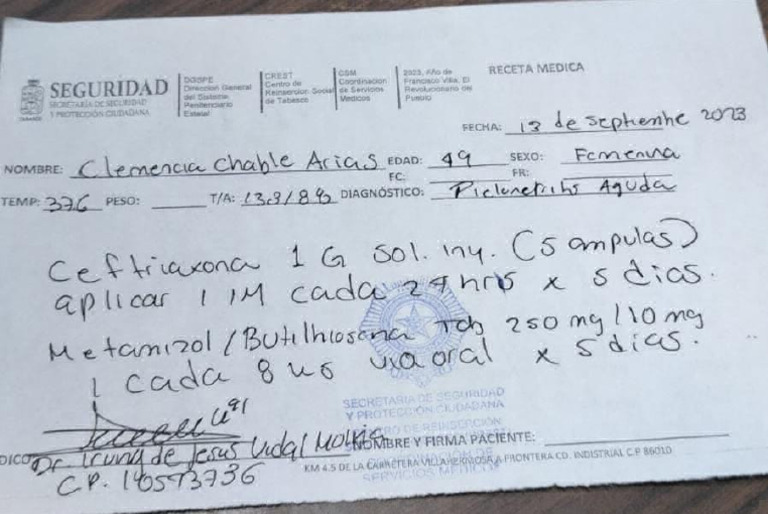 SEGURIDAD
SECRETARÍA DE SEGURIDAD
Y PROTECCIÓN CIUDADANA
DGSPE
Dirección General
del Sistema
Penitenciario
Estatal
CREST
Centro de
Reinserción Social
de Tabasco
CSM
Coordinación
de Servicios
Médicos
2023, Año de
Francisco Villa, El
Revolucionario del
Pueblo
RECETA MEDICA
FECHA: 13 de Septiembre 2023
NOMBRE: Clemencia Chable Arias EDAD: 49 SEXO: Femenina
FC: FR:
TEMP: 37.6 PESO: T/A: DIAGNÓSTICO: Pielonefritis Aguda
Ceftriaxona 1 G Sol. iny. (5 ampulas)
aplicar 1 IM cada 24 hrs x 5 dias.
Metamizol / Butilhioscina Tab 250 mg/10 mg
1 cada 8 hs via oral x 5 dias.
SECRETARIA DE SEGURIDAD
Y PROTECCIÓN CIUDADANA
CENTRO DE REINSERCIÓN
Dr. de Jesus Vidal
NOMBRE Y FIRMA PACIENTE:
C.P.
KM 4.5 DE LA CARRETERA VILLAHERMOSA A FRONTERA CD. INDUSTRIAL C.P 86010
SERVICIOS MEDICOS